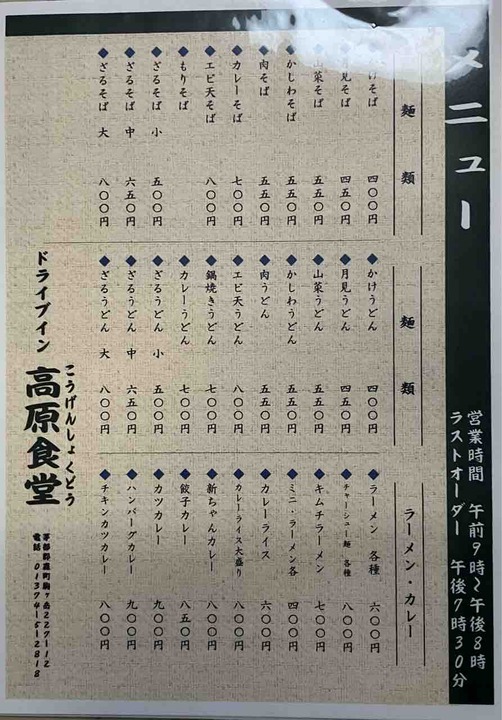 メニュー
営業時間 午前9時~午後8時
ラストオーダー 午後7時30分
麺類
けそば 四〇〇円
月見そば 四五〇円
山菜そば 五五〇円
かしわそば 五五〇円
肉そば 五五〇円
カレーそば 七〇〇円
エビ天そば 八〇〇円
もりそば
ざるそば 小 五〇〇円
ざるそば 中 六五〇円
ざるそば 大 八〇〇円
麺類
かけうどん 四〇〇円
月見うどん 四五〇円
山菜うどん 五五〇円
かしわうどん 五五〇円
肉うどん 五五〇円
エビ天うどん 八〇〇円
鍋焼きうどん 七〇〇円
カレーうどん 七〇〇円
ざるうどん 小 五〇〇円
ざるうどん 中 六五〇円
ざるうどん 大 八〇〇円
ラーメン・カレー
ラーメン 各種 六〇〇円
チャーシュー麺 各種 八〇〇円
キムチラーメン 七〇〇円
ミニ・ラーメン各 四〇〇円
カレーライス 六〇〇円
カレーライス大盛り 八〇〇円
新ちゃんカレー 八〇〇円
餃子カレー 八五〇円
カツカレー 九〇〇円
ハンバーグカレー 九〇〇円
チキンカツカレー 八〇〇円
ドライブイン 高原食堂
こうげんしょくどう
茅部郡森町駒ヶ岳227-12
電話 01374-5-2818